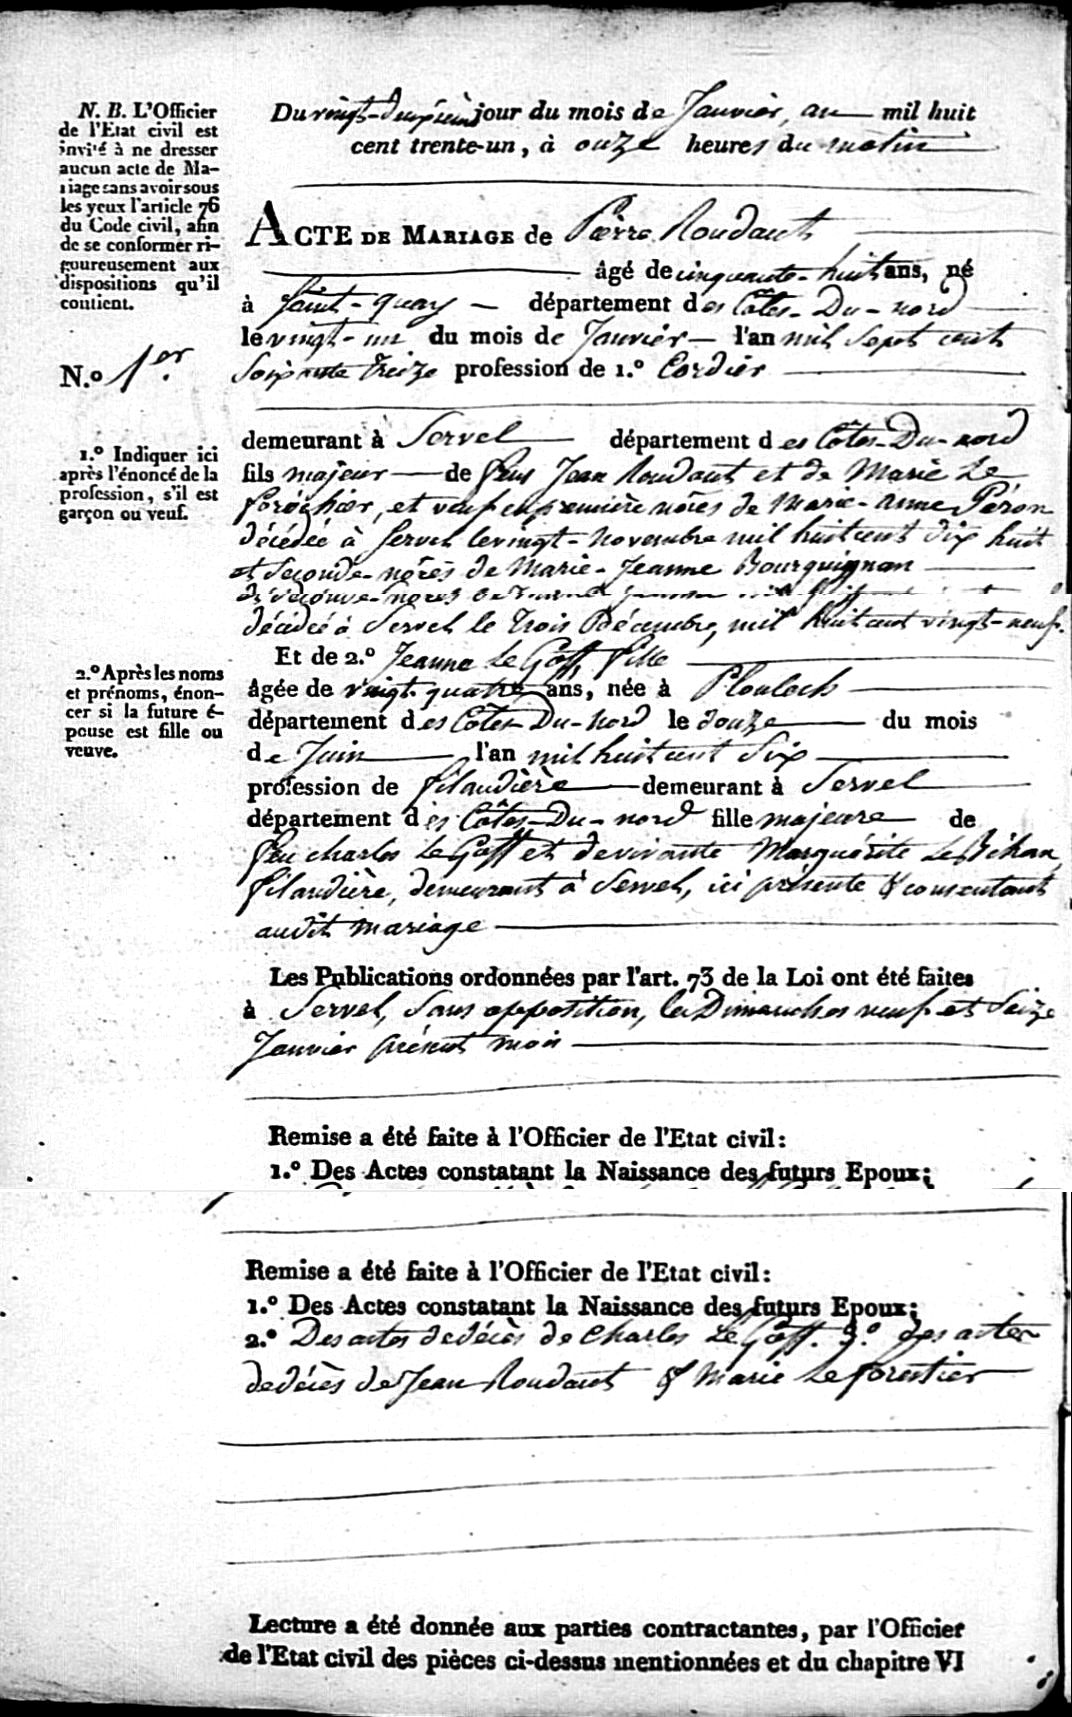 N. B. L'Officier
de l'Etat civil est
invité à ne dresser
aucun acte de Ma-
riage sans avoir sous
les yeux l'article 76
du Code civil, afin
de se conformer ri-
goureusement aux
dispositions qu'il
contient.
N.º 1er.
1.º Indiquer ici
après l'énoncé de la
profession, s'il est
garçon ou veuf.
2.º Après les noms
et prénoms, énon-
cer si la future é-
pouse est fille ou
veuve.
Du vingt-deuxième jour du mois de Janvier, an mil huit
cent trente-un, à onze heures du matin
ACTE DE MARIAGE de Pierre Roudaut
âgé de cinquante-huit ans, né
à Saint-quay département des Côtes-Du-nord
le vingt-un du mois de Janvier l'an mil sept cent
Soixante treize profession de 1.º Cordier
demeurant à Servel département des Côtes-Du-nord
fils majeur de feus Jean Roudaut et de Marie Le
, et veuf en première nôces de Marie-anne Péron
décédée à Servel le vingt-novembre mil huit cent dix huit
et Seconde-nôces de Marie-Jeanne Bourguignon
décédée à Servel le trois Décembre, mil huit cent vingt-neuf.
Et de 2.º Jeanne Le Goff fille
âgée de vingt-quatre ans, née à Ploulech
département des Côtes-Du-nord le douze du mois
de Juin l'an mil huit cent Six
profession de filandière demeurant à Servel
département des Côtes-Du-nord fille majeure de
feu charles Le Goff et de vivante Marguérite Le Bihan,
filandière, demeurant à Servel, ici présente & consentant
audit mariage
Les Publications ordonnées par l'art. 73 de la Loi ont été faites
à Servel, Sans opposition, les Dimanches neuf et Seize
Janvier présent mois
Remise a été faite à l'Officier de l'Etat civil:
1.º Des Actes constatant la Naissance des futurs Epoux;
Remise a été faite à l'Officier de l'Etat civil:
1.º Des Actes constatant la Naissance des futurs Epoux;
2.º Des actes de décès de Charles Le Goff. 3.º des actes
de décès de Jean Roudaut & Marie Le forestier
Lecture a été donnée aux parties contractantes, par l'Officier
de l'Etat civil des pièces ci-dessus mentionnées et du chapitre VI